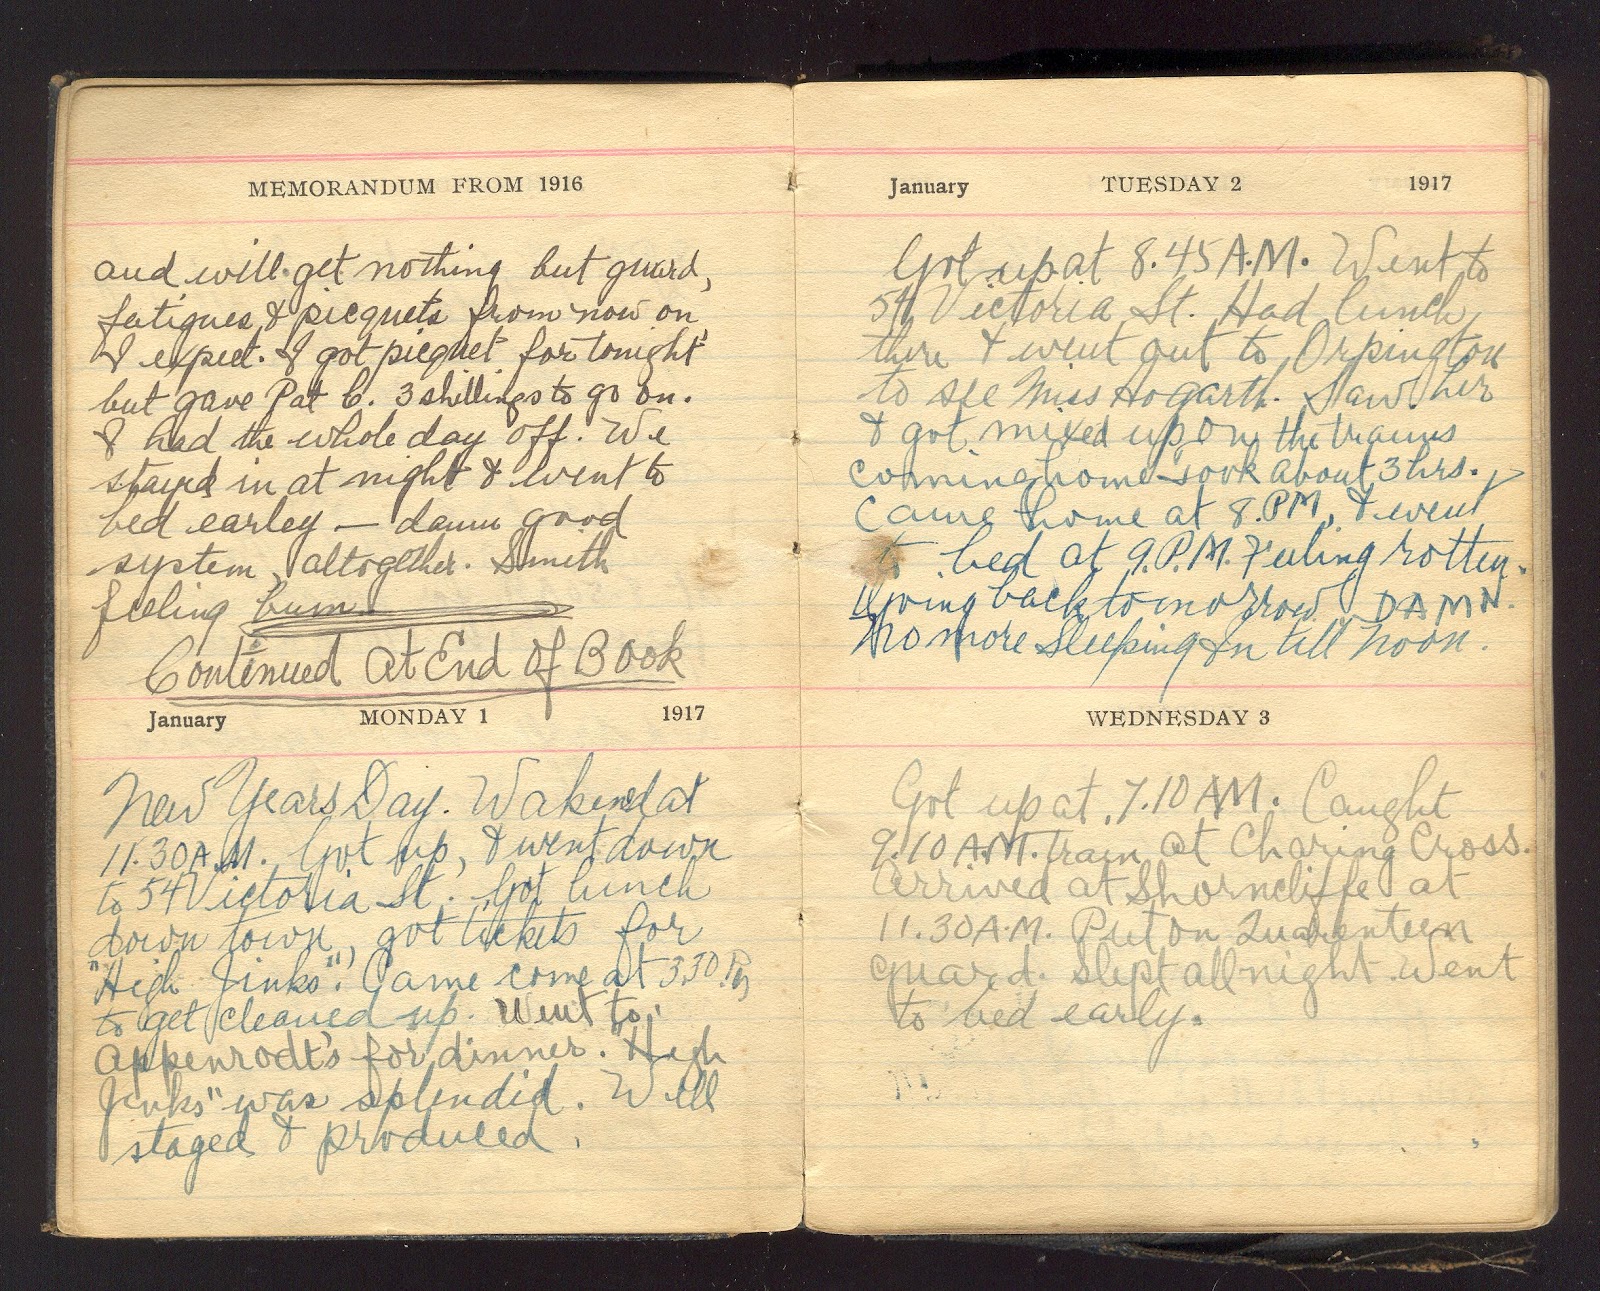 MEMORANDUM FROM 1916
and will get nothing but guard,
fatigues & picquets from now on
I expect. I got picquet for tonight
but gave Pat C. 3 shillings to go on.
I had the whole day off. We
stayed in at night & went to
bed earley — damn good
system, altogether. Smith
feeling bum
Continued At End Of Book
January MONDAY 1 1917
New Years Day. Wakened at
11.30 A.M. Got up, & went down
to 54 Victoria St. Got lunch
down town, got tickets for
"High Jinks". Came come at 3.30 P.M
to get cleaned up. Went to
Appenrodt's for dinner. "High
Jinks" was splendid. Well
staged & produced.
January TUESDAY 2 1917
Got up at 8.45 A.M. Went to
54 Victoria St. Had lunch
there & went out to Orpington
to see Miss Hogarth. Saw her
& got mixed up on the trains
coming home took about 3 hrs.
Came home at 8.PM, & went
to bed at 9.P.M. Feeling rotten.
Going back tomorrow DAMN.
No more sleeping In till noon.
WEDNESDAY 3
Got up at 7.10 AM. Caught
9.10 A.M. train at Charing Cross.
Arrived at Shorncliffe at
11.30 A.M. Put on Quarenteen
guard. Slept all night. Went
to bed early.